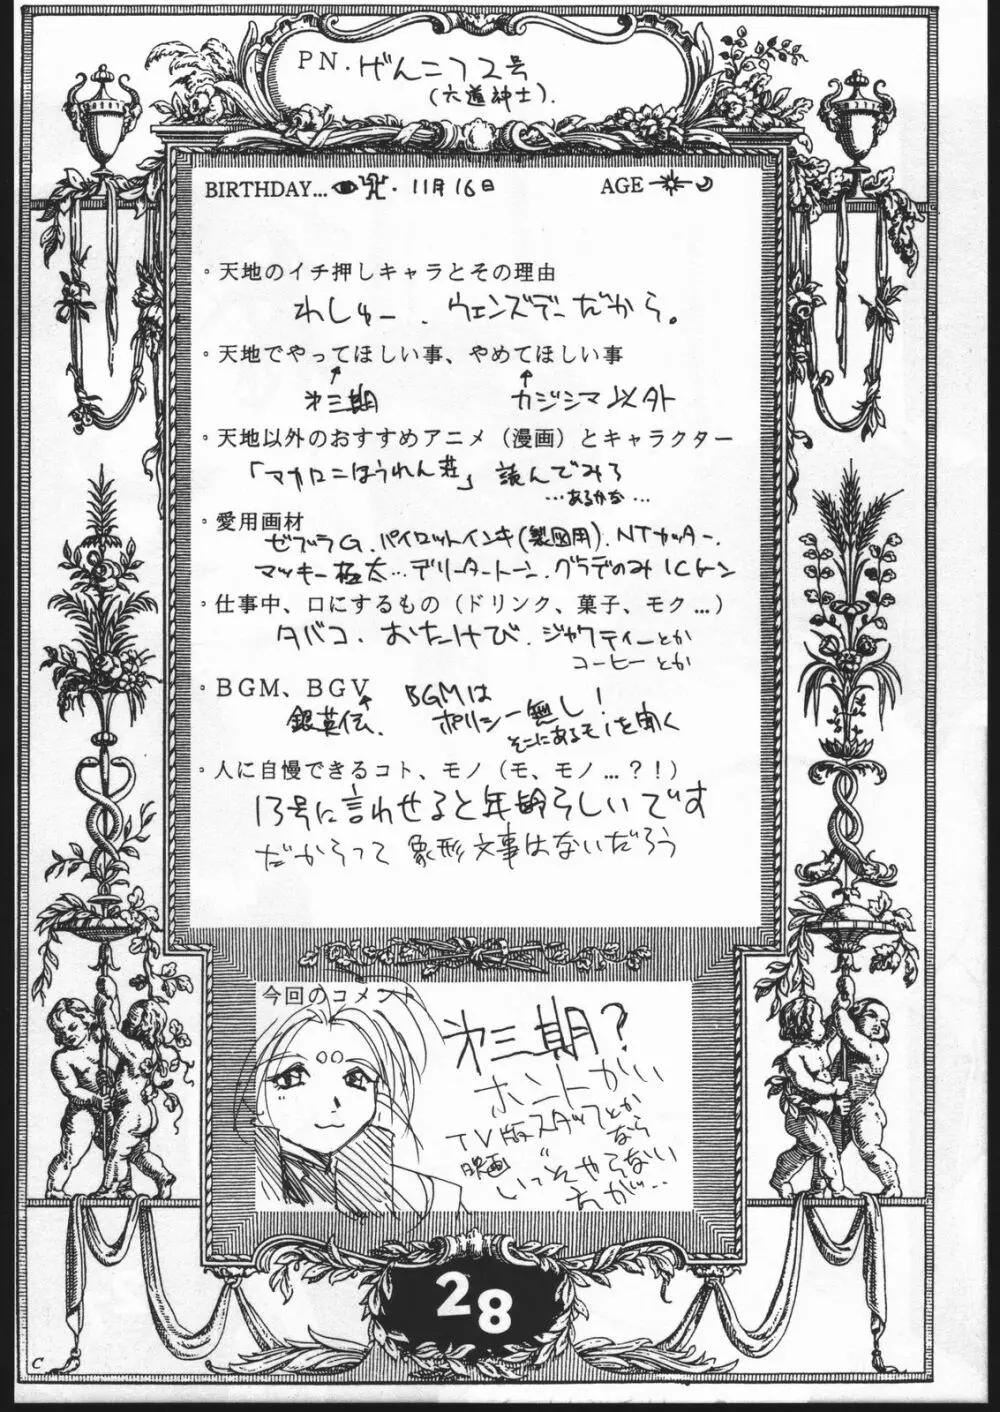 PN. げんこつ2号
(六道紳士).
BIRTHDAY... 11月16日
AGE
。天地のイチ押しキャラとその理由
わしゅー、ウェンズデーだから。
。天地でやってほしい事、やめてほしい事
↑ ↑
第三期 カジシマ以外
。天地以外のおすすめアニメ（漫画）とキャラクター
「マカロニほうれん荘」読んでみろ
...あるかな...
。愛用画材
ゼブラG、パイロットインキ(製図用)、NTカッター、
マッキー極太...デリータートーン、グラデのみICトーン
。仕事中、口にするもの（ドリンク、菓子、モク...）
タバコ、おたけび、ジャワティーとか
コーヒーとか
。BGM、BGV
↑
銀英伝、
BGMは
ポリシー無し!
そこにあるモノを聞く
。人に自慢できるコト、モノ（モ、モノ...?!）
13号に言わせると年齢らしいです
だからって象形文字はないだろう
今回のコメント
第三期?
ホントかい
TV版スタッフとかなら
映画
いっそやらない
が...
28
C